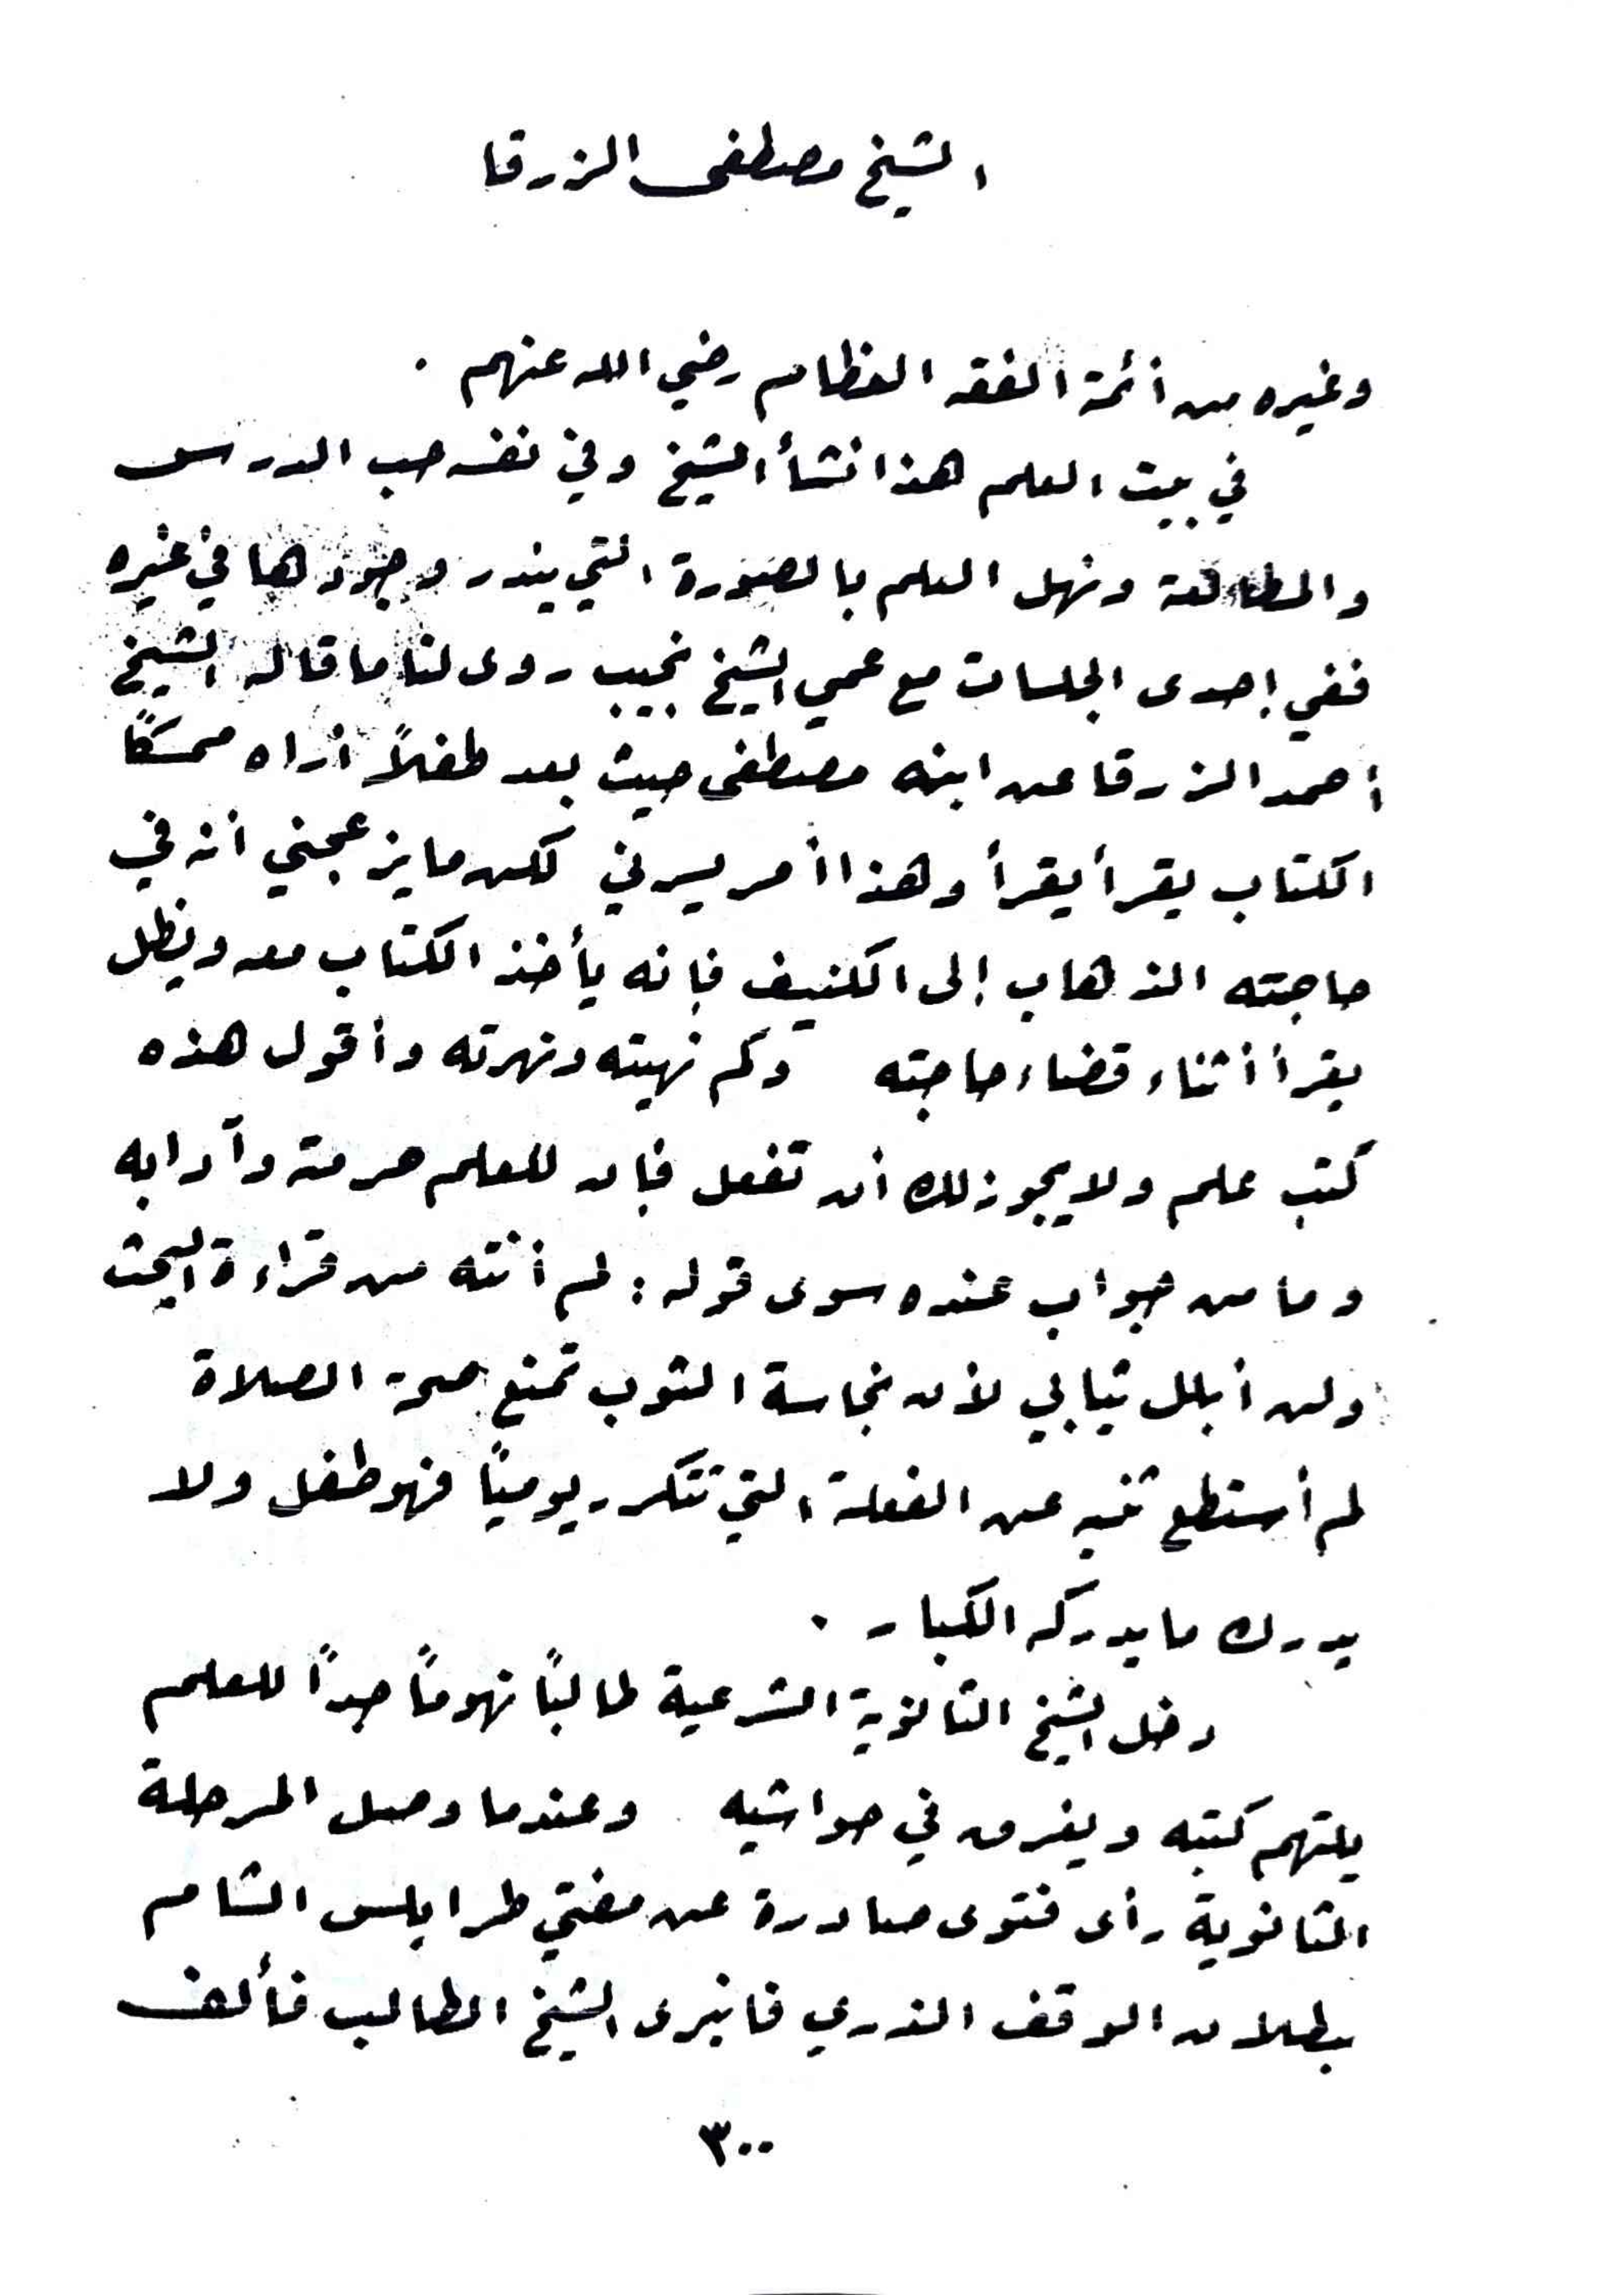 الشيخ مصطفى الزرقا
وغيره من أئمة الفقه العظام رضي الله عنهم .
في بيت العلم هذا نشأ الشيخ وفي نفسه حب الدرس
والمطالعة ونهل العلم بالصورة التي يندر وجودها في غيره
ففي إحدى الجلسات مع عمي الشيخ نجيب روى لنا ما قاله الشيخ
أحمد الزرقا عن ابنه مصطفى حيث بعد طفلاً أراه ممسكاً
الكتاب يقرأ يقرأ وهذا أمر يسرني لكن ما يزعجني أنه في
حاجته الذهاب إلى الكنيف فإنه يأخذ الكتاب معه ويظل
يقرأ أثناء قضاء حاجته وكم نهيته ونهرته وأقول هذه
كتب علم ولا يجوز لك أن تفعل فإن للعلم حرمة وآدابه
وما من جواب عنده سوى قوله : لم أنته من قراءة البحث
ولن أبلل ثيابي لأن نجاسة الثوب تمنع صحة الصلاة
لم أستطع ثنيه عن الفعلة التي تتكرر يومياً فهو طفل ولا
يدرك ما يدركه الكبار .
دخل الشيخ الثانوية الشرعية طالباً نهوماً جداً للعلم
يلتهم كتبه ويغرق في حواشيه وعندما وصل المرحلة
الثانوية رأى فتوى صادرة عن مفتي طرابلس الشام
ببطلان الوقف الذري فانبرى الشيخ الطالب فألف
٣٠٠